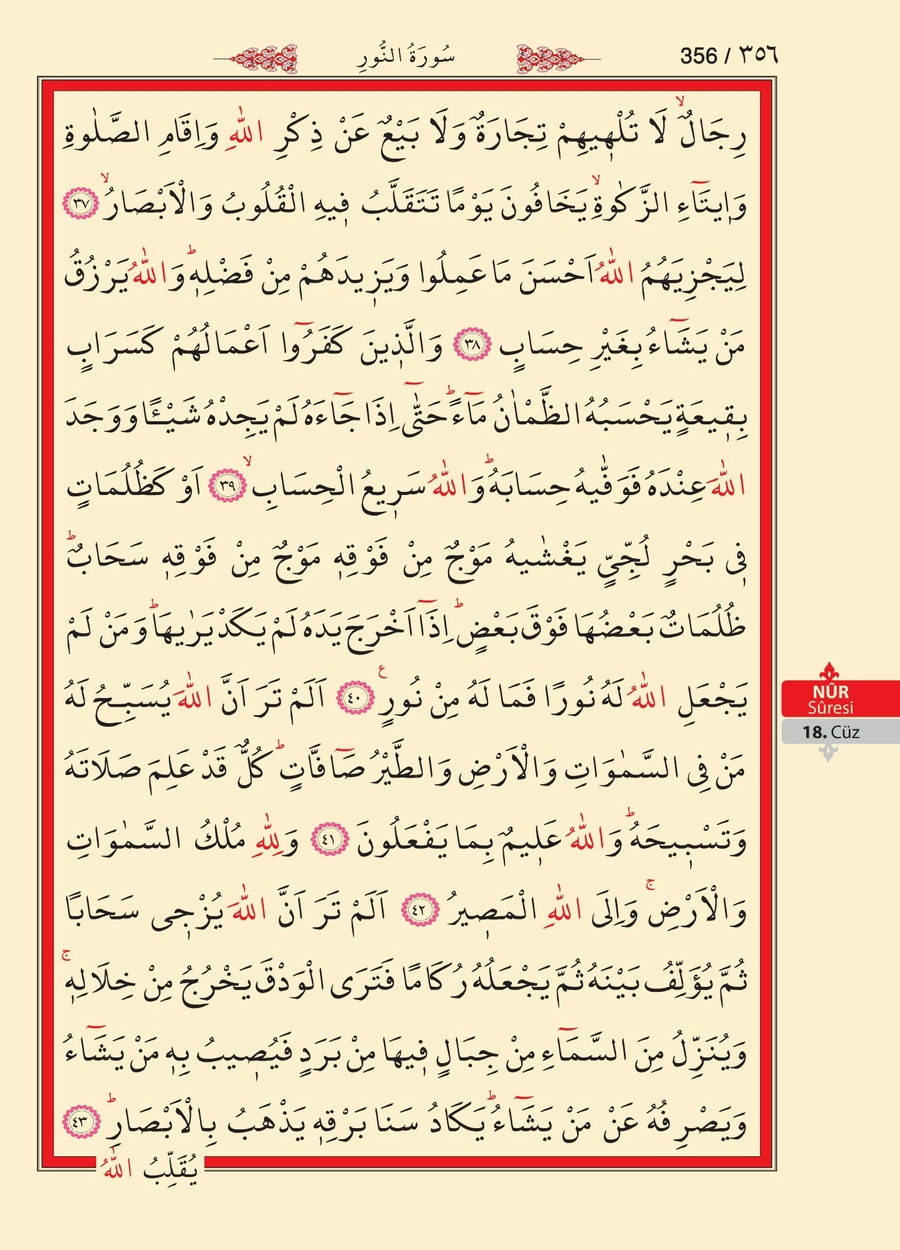 سُورَةُ النُّورِ
356 / ٣٥٦
رِجَالٌۙ لَا تُلْه۪يهِمْ تِجَارَةٌ وَلَا بَيْعٌ عَنْ ذِكْرِ اللّٰهِ وَاِقَامِ الصَّلٰوةِ
وَا۪يتَٓاءِ الزَّكٰوةِۙ يَخَافُونَ يَوْمًا تَتَقَلَّبُ ف۪يهِ الْقُلُوبُ وَالْاَبْصَارُۙ ﴿٣٧﴾
لِيَجْزِيَهُمُ اللّٰهُ اَحْسَنَ مَا عَمِلُوا وَيَز۪يدَهُمْ مِنْ فَضْلِه۪ۜ وَاللّٰهُ يَرْزُقُ
مَنْ يَشَٓاءُ بِغَيْرِ حِسَابٍ ﴿٣٨﴾ وَالَّذ۪ينَ كَفَرُٓوا اَعْمَالُهُمْ كَسَرَابٍ
بِق۪يعَةٍ يَحْسَبُهُ الظَّمْاٰنُ مَٓاءًۜ حَتّٰٓى اِذَا جَٓاءَهُ لَمْ يَجِدْهُ شَيْـًٔا وَوَجَدَ
اللّٰهَ عِنْدَهُ فَوَفّٰيهُ حِسَابَهُۜ وَاللّٰهُ سَر۪يعُ الْحِسَابِۙ ﴿٣٩﴾ اَوْ كَظُلُمَاتٍ
ف۪ي بَحْرٍ لُجِّيٍّ يَغْشٰيهُ مَوْجٌ مِنْ فَوْقِه۪ مَوْجٌ مِنْ فَوْقِه۪ سَحَابٌۜ
ظُلُمَاتٌ بَعْضُهَا فَوْقَ بَعْضٍۜ اِذَٓا اَخْرَجَ يَدَهُ لَمْ يَكَدْ يَرٰيهَاۜ وَمَنْ لَمْ
يَجْعَلِ اللّٰهُ لَهُ نُورًا فَمَا لَهُ مِنْ نُورٍ۟ ﴿٤٠﴾ اَلَمْ تَرَ اَنَّ اللّٰهَ يُسَبِّحُ لَهُ
مَنْ فِي السَّمٰوَاتِ وَالْاَرْضِ وَالطَّيْرُ صَٓافَّاتٍۜ كُلٌّ قَدْ عَلِمَ صَلَاتَهُ
وَتَسْب۪يحَهُۜ وَاللّٰهُ عَل۪يمٌ بِمَا يَفْعَلُونَ ﴿٤١﴾ وَلِلّٰهِ مُلْكُ السَّمٰوَاتِ
وَالْاَرْضِۚ وَاِلَى اللّٰهِ الْمَص۪يرُ ﴿٤٢﴾ اَلَمْ تَرَ اَنَّ اللّٰهَ يُزْج۪ي سَحَابًا
ثُمَّ يُؤَلِّفُ بَيْنَهُ ثُمَّ يَجْعَلُهُ رُكَامًا فَتَرَى الْوَدْقَ يَخْرُجُ مِنْ خِلَالِه۪ۚ
وَيُنَزِّلُ مِنَ السَّمَٓاءِ مِنْ جِبَالٍ ف۪يهَا مِنْ بَرَدٍ فَيُص۪يبُ بِه۪ مَنْ يَشَٓاءُ
وَيَصْرِفُهُ عَنْ مَنْ يَشَٓاءُۜ يَكَادُ سَنَا بَرْقِه۪ يَذْهَبُ بِالْاَبْصَارِۜ ﴿٤٣﴾
يُقَلِّبُ اللّٰهُ
NÛR
Sûresi
18. Cüz